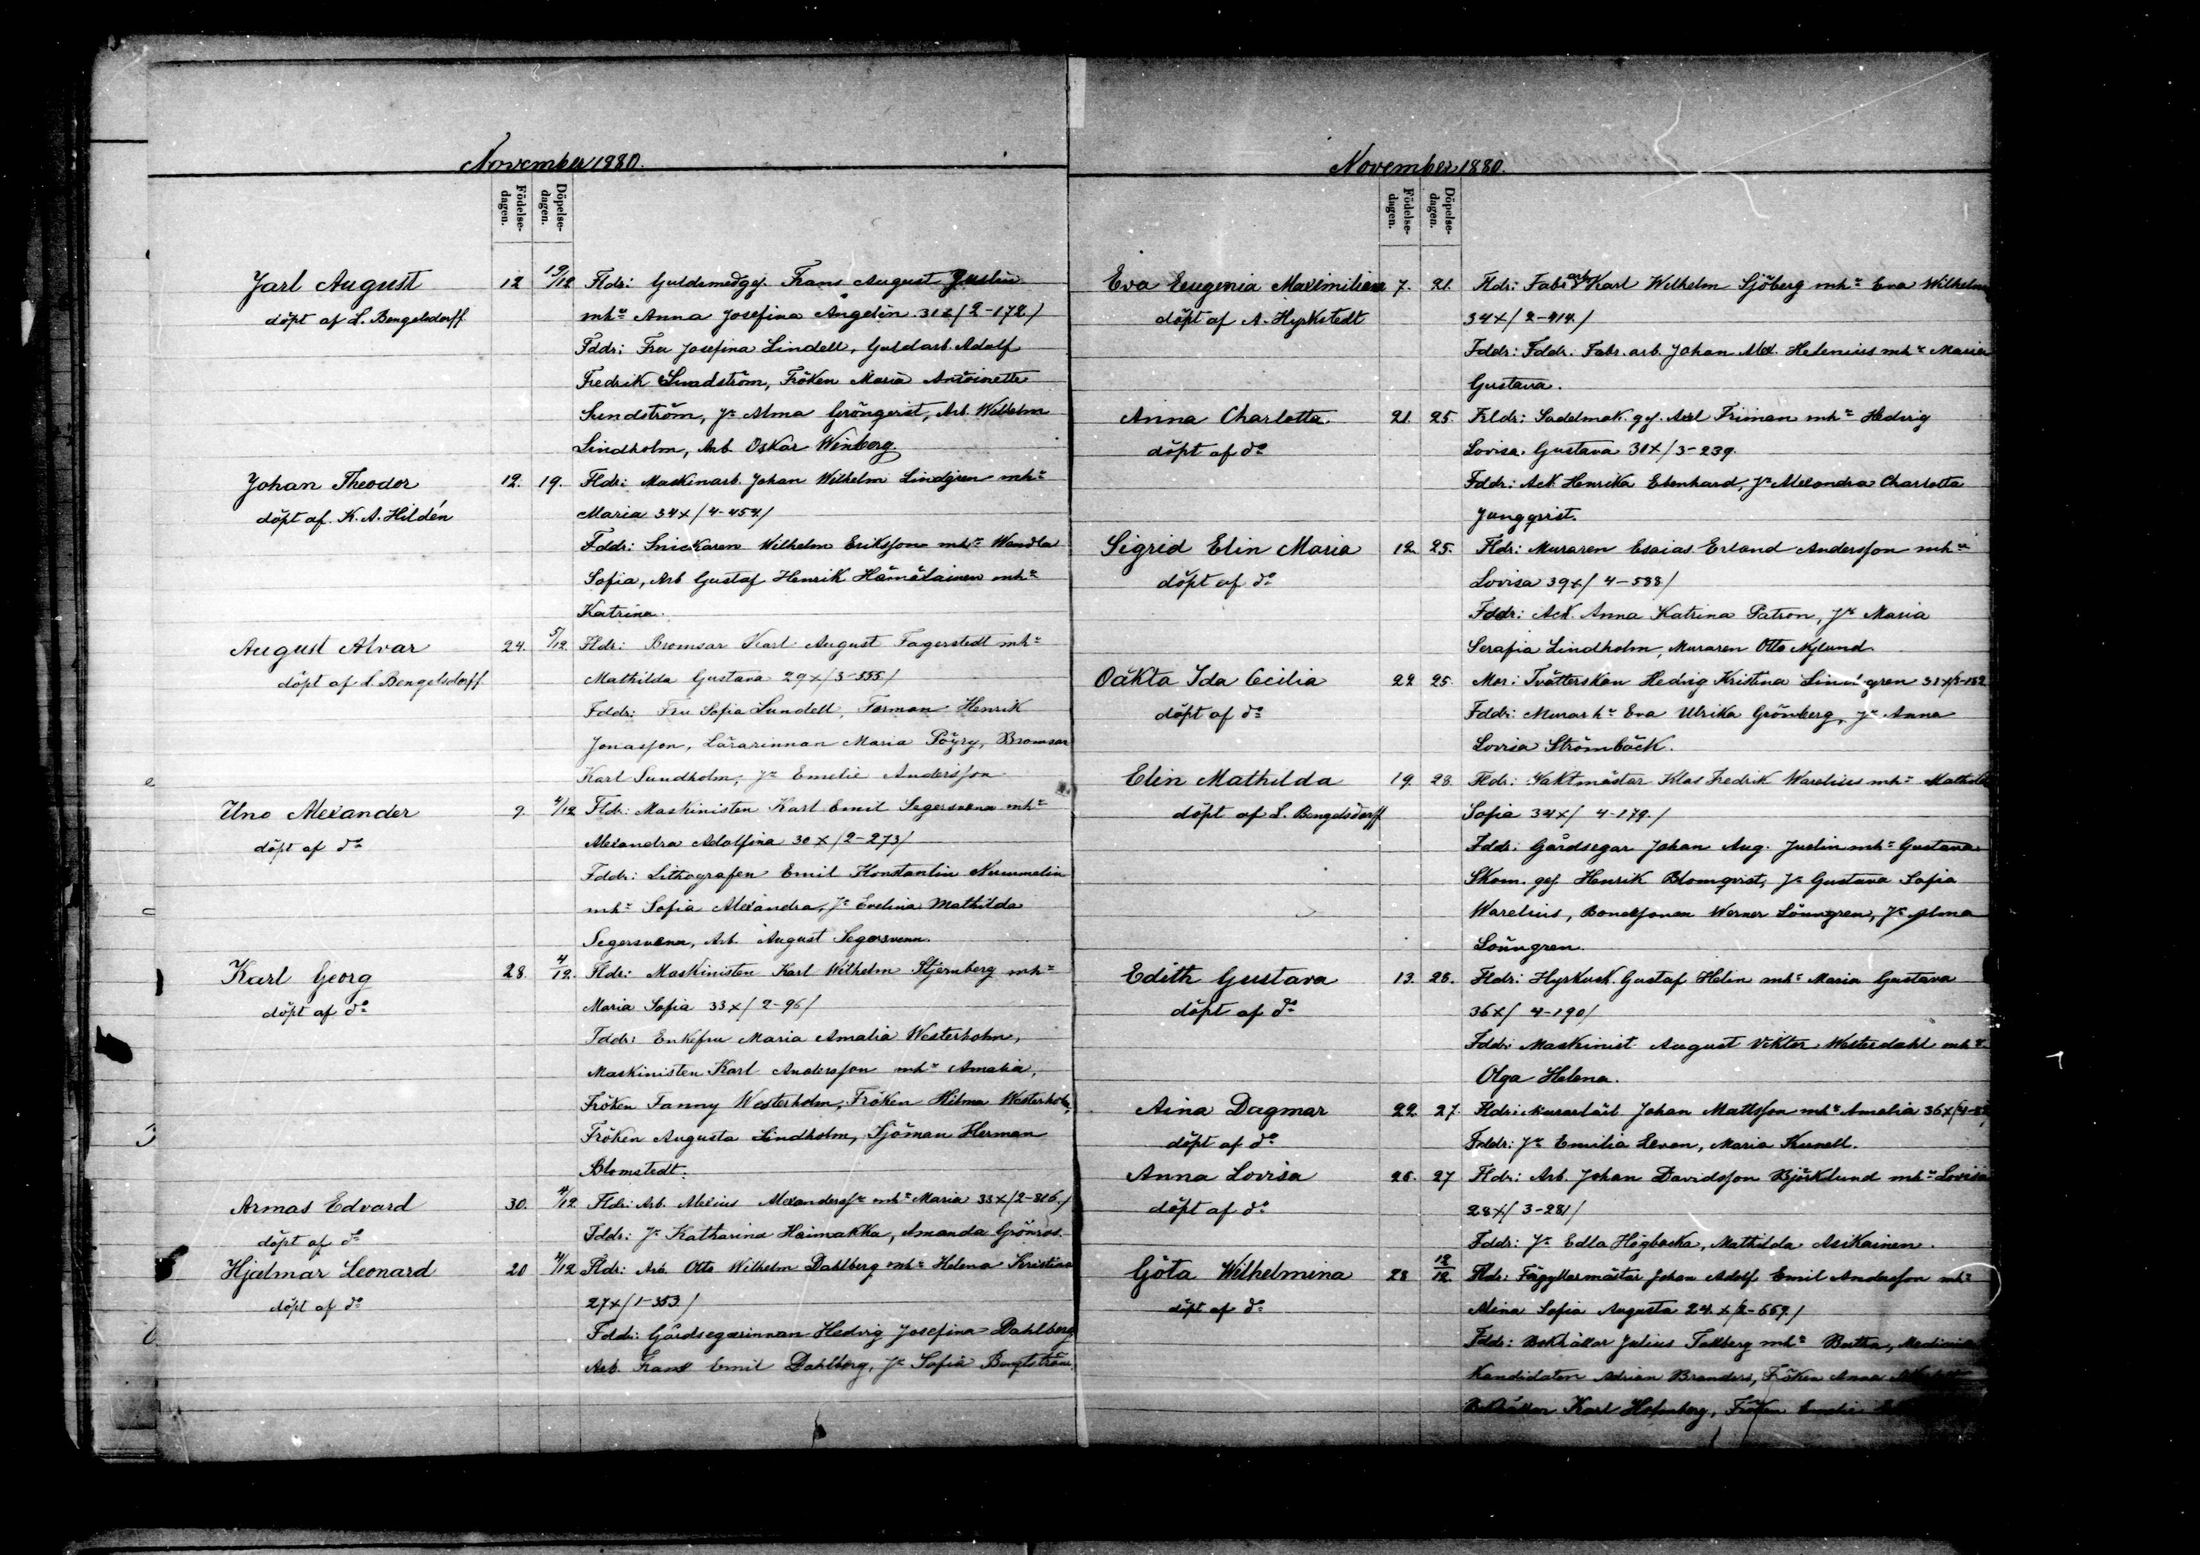 November 1880.
Födelse-
dagen.
Döpelse-
dagen.
Jarl August 12 19/12 Fldr: Guldsmedgs. Frans August Juslin
döpt af L. Bengelsdorff mhu Anna Josefina Ängelin 31x/2-172/
Fddr: Fru Josefina Lindell, Guldarb. Adolf
Fredrik Sundström, Fröken Maria Antoinette
Sundström, Jr Alma Gröngvist, Arb. Wilhelm
Lindholm, Arb. Oskar Winberg.
Johan Theodor 12. 19. Fldr: Maskinarb. Johan Wilhelm Lindgren mhu
döpt af. K. A. Hildén Maria 34x/4-454/
Fddr: Snickaren Wilhelm Eriksson mhu Wendla
Sofia, Arb Gustaf Henrik Hämäläinen mhu
Katrina.
August Alvar 24. 5/12 Fldr: Bromsar Karl August Fagerstedt mhu
döpt af L Bengelsdorff Mathilda Gustava 29x/3-555/
Fddr: Fru Sofia Lundell, Forman Henrik
Jonasson, Lärarinnan Maria Pöyry, Bromsar
Karl Sundholm, Jr Emelie Andersson.
Uno Alexander 9. 4/12 Fldr: Maskinisten Karl Emil Segersvena mhu
döpt af do Alexandra Adolfina 30x/2-273/
Fddr: Lithografen Emil Konstantin Nerummelin
mhu Sofia Alexandra, Jr Evelina Mathilda
Segersvena, Arb. August Segersvenn.
Karl Georg 28. 4/12. Fldr: Maskinisten Karl Wilhelm Stjernberg mhu
döpt af do Maria Sofia 33x/2-96/
Fddr: Enkefru Maria Amalia Westerholm,
Maskinisten Karl Andersson mhu Amalia,
Fröken Fanny Westerholm, Fröken Hilma Westerholm,
Fröken Augusta Lindholm, Sjöman Herman
Blomstedt.
Armas Edvard 30. 4/12 Fldr: Arb. Alexius Alexanderss. mhu Maria 33x/2-816./
döpt af do Fddr: Jr Katharina Haimakka, Amanda Grönros.
Hjalmar Leonard 20 4/12 Fldr: Arb. Otto Wilhelm Dahlberg mhu Helena Kristina
döpt af do 27x/1-353/
Fddr: Gårdsegarinnan Hedvig Josefina Dahlberg
Arb. Frans Emil Dahlberg, Jr Sofia Bengtström.
November 1880.
Födelse-
dagen.
Döpelse-
dagen.
Eva Eugenia Maximiliana 7. 21. Fldr: Fabr arb Karl Wilhelm Sjöberg mhu Eva Wilhelm
döpt af A. Hyrkstedt 34x/2-914/
Fddr: Fddr. Fabr. arb. Johan Alex. Helenius mhu Maria
Gustava.
Anna Charlotta. 21. 25. Frldr: Sadelmak. gs. Axel Friman mhu Hedvig
döpt af do Lovisa Gustava 31x/3-239.
Fddr: Ack Henrika Ebenhard, Jr Alexandra Charlotta
Jungqvist.
Sigrid Elin Maria 12 25. Fldr: Muraren Esaias Erland Andersson mhu
döpt af do Lovisa 39x/4-588/
Fddr: Ack Anna Katrina Patron, Jr Maria
Serafia Lindholm, Muraren Otto Nylund.
Oäkta Ida Cecilia 22 25. Mor: Tvätterskan Hedvig Kristina Lindgren 31x/3-152
döpt af do Fddr: Murarhu Eva Ulrika Grönberg, Jr Anna
Lovisa Strömbäck.
Elin Mathilda 19. 28. Fldr: Vaktmästar Klas Fredrik Warelius mhu Mathilda
döpt af L. Bengelsdorff Sofia 34x/4-179./
Fddr. Gårdsegar Johan Aug. Juslin mhu Gustava.
Skom. gs. Henrik Blomqvist, Jr Gustava Sofia
Warelius, Bondesonen Werner Lönngren, Jr Alma
Lönngren.
Edith Gustava 13. 26. Fldr: Hyrkusk Gustaf Helin mhu Maria Gustava
döpt af do 36x/4-190/
Fddr: Maskinist August Viktor Westerdahl mhu
Olga Helena.
Aina Dagmar 22. 27. Fldr: Johan Mattsson mhu Amalia 36x/
döpt af do Fddr: Jr Emilia Leven, Maria Kunell.
Anna Lovisa 26. 27 Fldr: Arb. Johan Davidsson Björklund mhu Lovisa
döpt af do 28x/3-281/
Fddr: Jr Edla Högbacka, Mathilda Asikainen.
Göta Wilhelmina 28 12/12 Fldr: Förgyllarmästar Johan Adolf Emil Andersson mhu
döpt af do Alina Sofia Augusta 24.x/2-669./
Fddr: Bokhållar Julius Tallberg mhu Bertha, Medicine
Kandidaten Adrian Branders, Fröken Anna
Bokhållar Karl Holmberg, Fröken Emelie